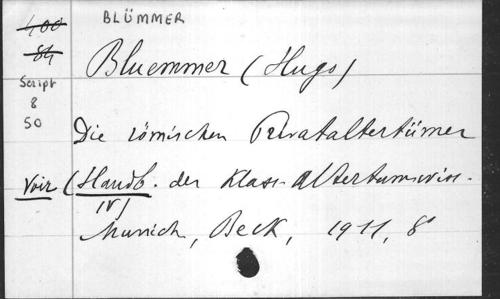 BLÜMMER
400
84
Script
8
50
Bluemmer (Hugo)
Die römischen Privataltertümer
Voir (Handb. der Klass. Altertumswiss.
IV)
Munich, Beck, 1911, 8°